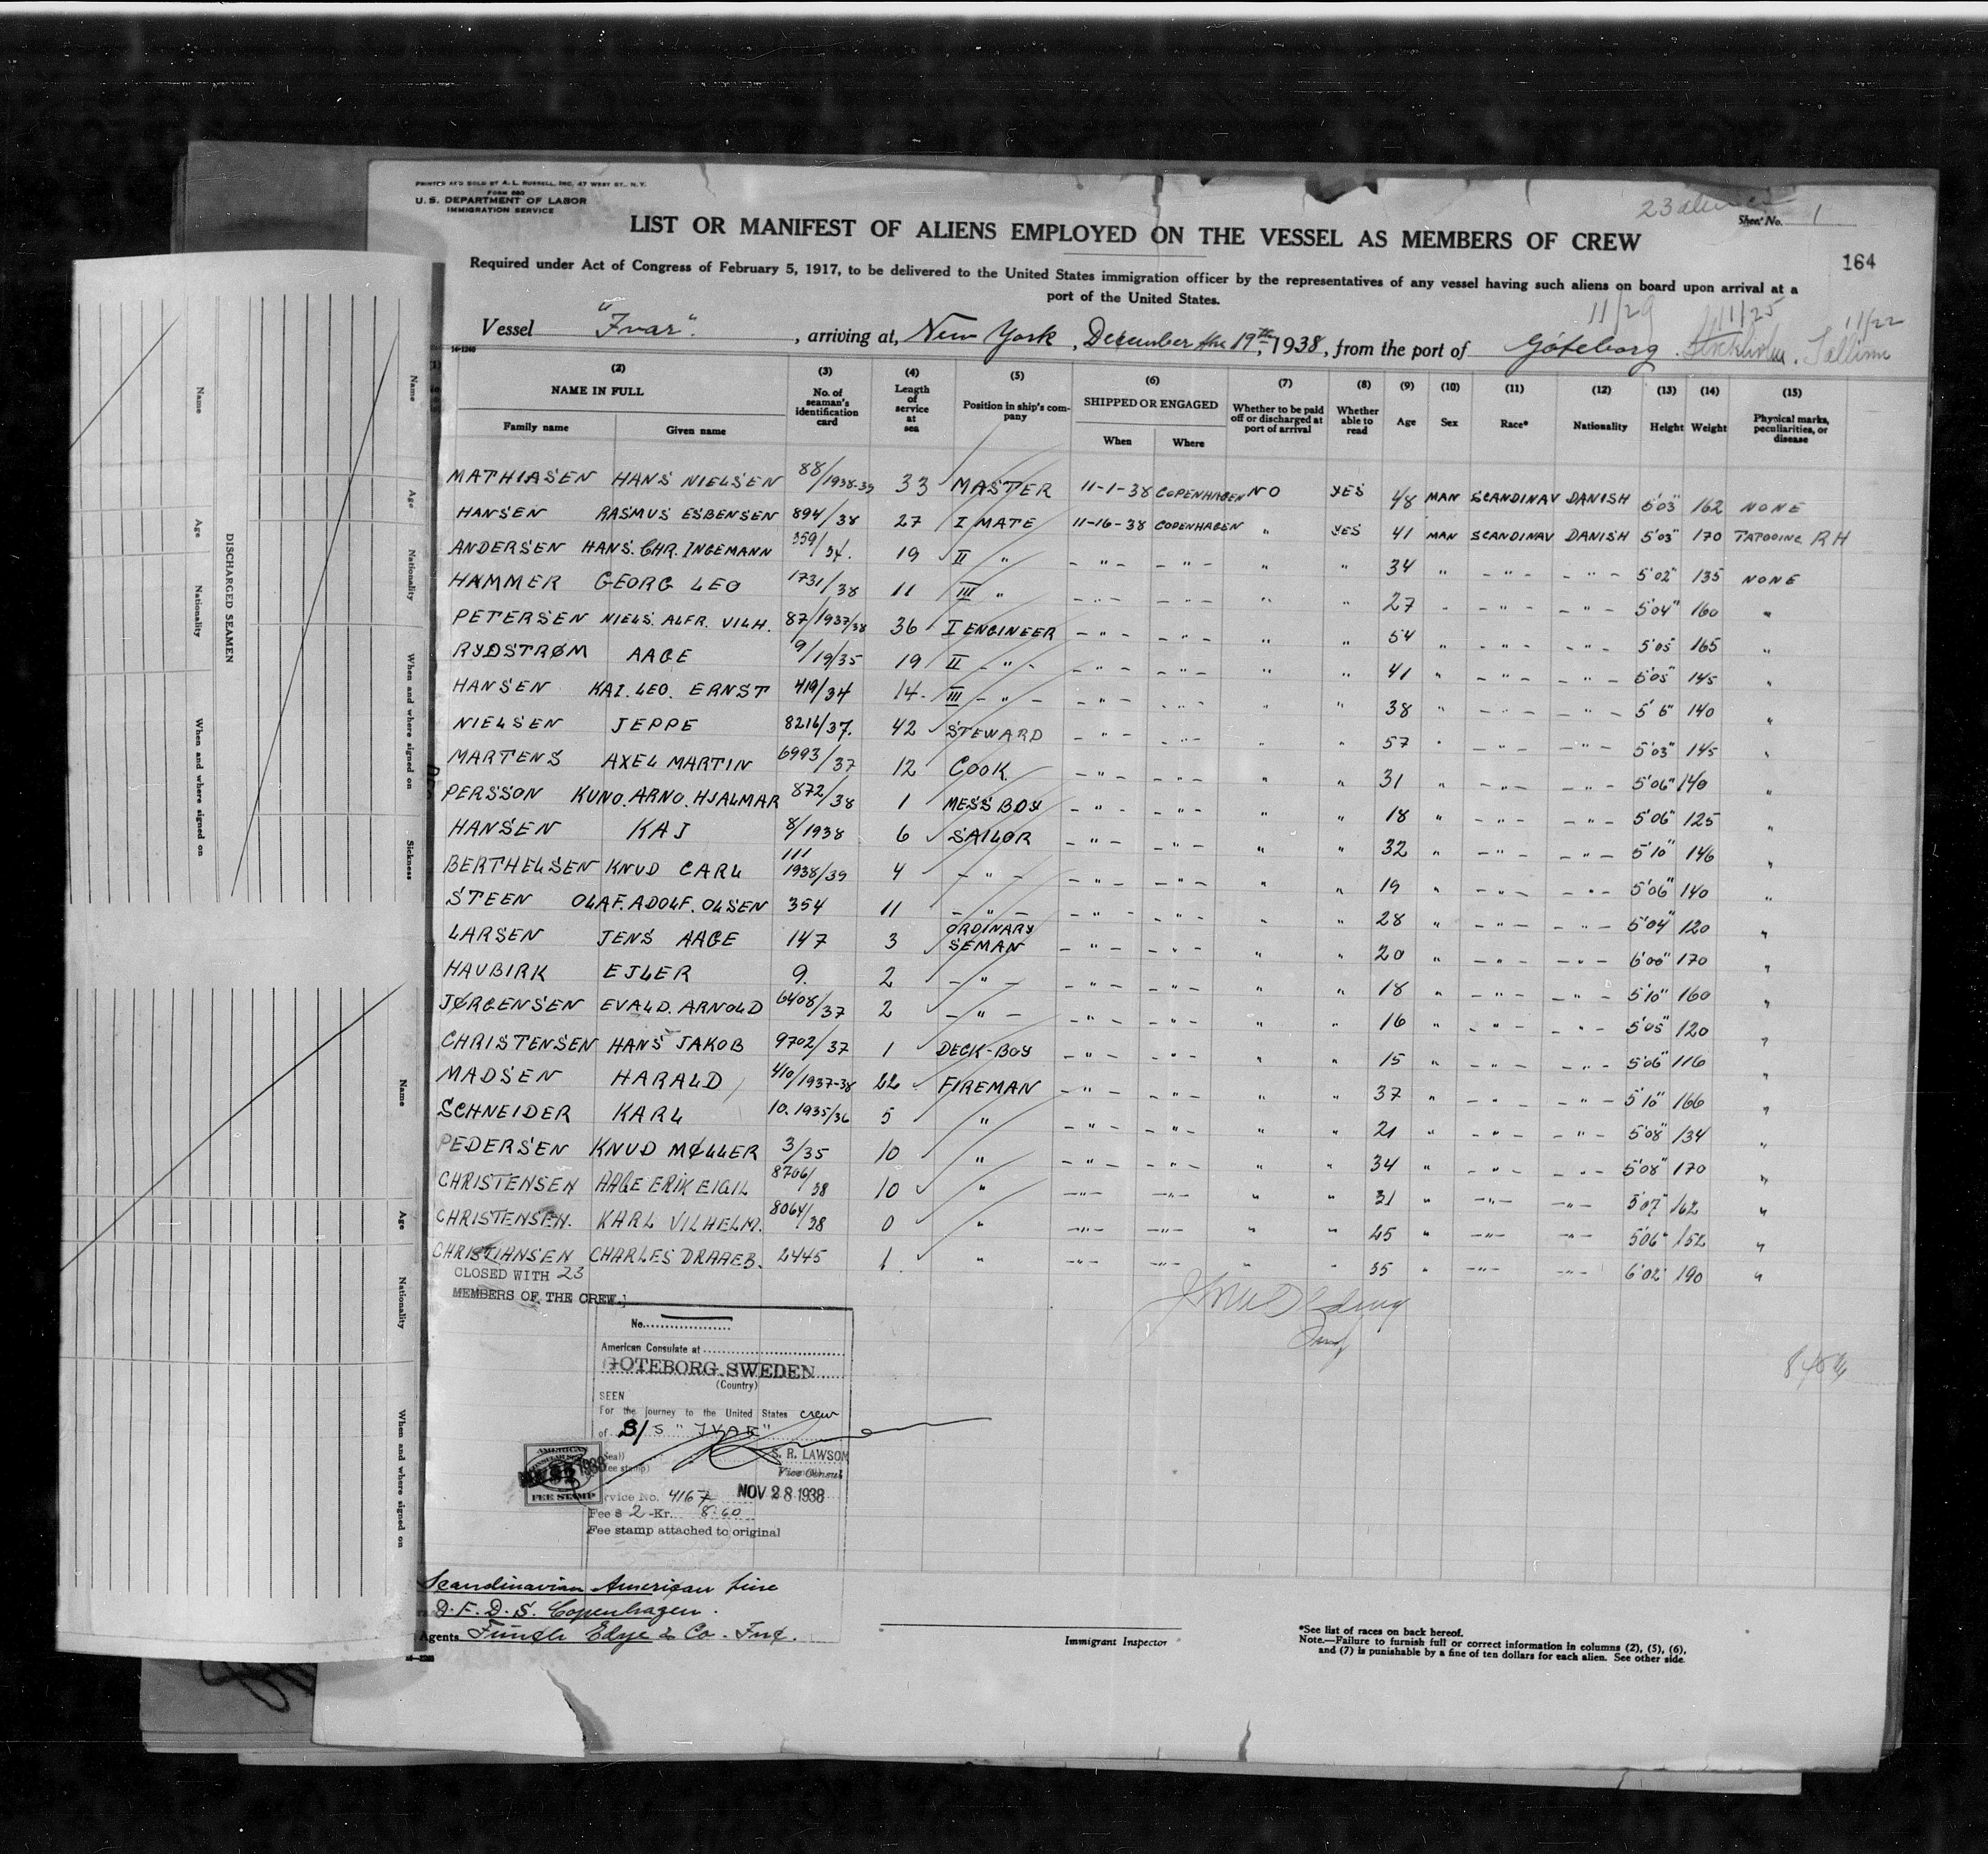 PRINTED AND SOLD BY A. L. RUSSELL, INC. 47 WEST ST., N. Y.
FORM 680
U. S. DEPARTMENT OF LABOR
IMMIGRATION SERVICE
Sheet No. 1
LIST OR MANIFEST OF ALIENS EMPLOYED ON THE VESSEL AS MEMBERS OF CREW
164
Required under Act of Congress of February 5, 1917, to be delivered to the United States immigration officer by the representatives of any vessel having such aliens on board upon arrival at a
port of the United States.
11/29 11/25 11/22
Vessel "Ivar". , arriving at, New York, December the 19th, 1938, from the port of Göteborg. Stockholm. Tallinn
14-1240
(1) (2) (3) (4) (5) (6) (7) (8) (9) (10) (11) (12) (13) (14) (15)
NAME IN FULL No. of seaman's identification card Length of service at sea Position in ship's company SHIPPED OR ENGAGED Whether to be paid off or discharged at port of arrival Whether able to read Age Sex Race* Nationality Height Weight Physical marks, peculiarities, or disease
Family name Given name When Where
MATHIASEN HANS NIELSEN 88/1938-39 33 MASTER 11-1-38 COPENHAGEN NO YES 48 MAN SCANDINAV DANISH 5'03" 162 NONE
HANSEN RASMUS ESBENSEN 894/38 27 I MATE 11-16-38 COPENHAGEN " YES 41 MAN SCANDINAV DANISH 5'03" 170 TATOOING RH
ANDERSEN HANS. CHR. INGEMANN 359/34. 19 II " - " - - " - " " 34 " - " - - " - 5'02" 135 NONE
HAMMER GEORG LEO 1731/38 11 III " - " - - " - " " 27 " - " - - " - 5'04" 160 "
PETERSEN NIELS. ALFR. VILH. 87/1937/38 36 I ENGINEER - " - - " - " " 54 " - " - - " - 5'05" 165 "
RYDSTRØM AAGE 9/19/35 19 II - " - - " - - " - " " 41 " - " - - " - 5'05" 145 "
HANSEN KAI. LEO. ERNST 419/34 14. III - " - - " - - " - " " 38 " - " - - " - 5'6" 140 "
NIELSEN JEPPE 8216/37. 42 STEWARD - " - - " - " " 57 " - " - - " - 5'03" 145 "
MARTENS AXEL MARTIN 6993/37 12 COOK - " - - " - " " 31 " - " - - " - 5'06" 140 "
PERSSON KUNO. ARNO. HJALMAR 872/38 1 MESS BOY - " - - " - " " 18 " - " - - " - 5'06" 125 "
HANSEN KAJ 8/1938 6 SAILOR - " - - " - " " 32 " - " - - " - 5'10" 146 "
BERTHELSEN KNUD CARL 111 1938/39 4 - " - - " - - " - " " 19 " - " - - " - 5'06" 140 "
STEEN OLAF. ADOLF. OLSEN 354 11 - " - - " - - " - " " 28 " - " - - " - 5'04" 120 "
LARSEN JENS AAGE 147 3 ORDINARY SEMAN - " - - " - " " 20 " - " - - " - 6'00" 170 "
HAVBIRK EJLER 9. 2 - " - - " - - " - " " 18 " - " - - " - 5'10" 160 "
JØRGENSEN EVALD. ARNOLD 6408/37 2 - " - - " - - " - " " 16 " - " - - " - 5'05" 120 "
CHRISTENSEN HANS JAKOB 9702/37 1 DECK-BOY - " - - " - " " 15 " - " - - " - 5'06" 116 "
MADSEN HARALD 410/1937-38 22 FIREMAN - " - - " - " " 37 " - " - - " - 5'10" 166 "
SCHNEIDER KARL 10. 1935/36 5 " - " - - " - " " 21 " - " - - " - 5'08" 134 "
PEDERSEN KNUD MØLLER 3/35 10 " - " - - " - " " 34 " - " - - " - 5'08" 170 "
CHRISTENSEN AAGE ERIK EIGIL 8706/38 10 " - " - - " - " " 31 " - " - - " - 5'07" 162 "
CHRISTENSEN. KARL VILHELM. 8064/38 0 " - " - - " - " " 25 " - " - - " - 5'06" 152 "
CHRISTIANSEN CHARLES DRAAEB. 2445 1 " - " - - " - " " 35 " - " - - " - 6'02" 190 "
CLOSED WITH 23
MEMBERS OF THE CREW.
No.
American Consulate at
GOTEBORG. SWEDEN
(Country)
SEEN
For the journey to the United States crew
of S/S "IVAR"
S. R. LAWSON
Vice Consul
AMERICAN
FEE STAMP
Service No. 4167 NOV 28 1938
Fee $ 2 -Kr. 8.60
Fee stamp attached to original
Scandinavian American Line
D. F. D. S. Copenhagen.
Agents Funch Edye & Co. Inc.
Immigrant Inspector
*See list of races on back hereof.
Note.—Failure to furnish full or correct information in columns (2), (5), (6),
and (7) is punishable by a fine of ten dollars for each alien. See other side
DISCHARGED SEAMEN
Name Age Nationality When and where signed on
Name Age Nationality When and where signed on Sickness
Name Age Nationality When and where signed on